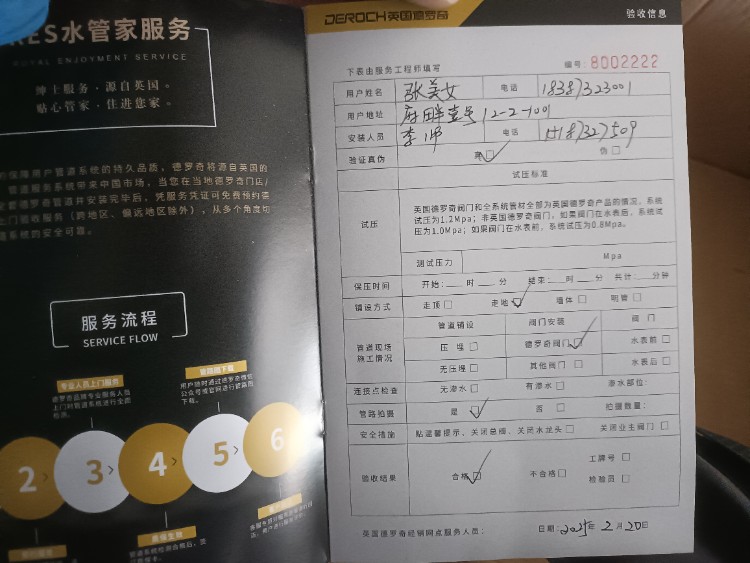 RES水管家服务
ROYAL ENJOYMENT SERVICE
绅士服务·源自英国。
贴心管家·住进您家。
保障用户管道系统的持久品质，德罗奇将源自英国的
管道服务系统带来中国市场，当您在当地德罗奇门店/
德罗奇管道并安装完毕后，凭服务凭证可免费预约德
上门验收服务（跨地区、偏远地区除外），从多个角度切
系统的安全可靠。
服务流程
SERVICE FLOW
专业人员上门服务
2
3
4
5
6
DEROCH英国德罗奇
验收信息
下表由服务工程师填写
编号：8002222
用户姓名 张美女 电话 18387323001
用户地址 府畔壹号 12-2-1001
安装人员 李 电话
验证真伪 真 伪
试压标准
试压
英国德罗奇阀门和全系统管材全部为英国德罗奇产品的情况，系统
试压为1.2Mpa；非英国德罗奇阀门，如果阀门在水表后，系统试
压为1.0Mpa；如果阀门在水表前，系统试压为0.8Mpa。
测试压力 Mpa
保压时间 开始：__时__分 结束：__时__分 共计：__分钟
铺设方式 走顶 走地 墙体 明管
管道现场施工情况
管道铺设 阀门安装 阀门
压埋 德罗奇阀门 水表前
无压埋 其他阀门 水表后
连接点检查 无渗水 有渗水 渗水部位：
管路拍摄 是 否 拍摄数量：
安全措施 贴温馨提示、关闭总阀、关闭水龙头 关闭业主阀门
验收结果 合格 不合格 工牌号
检验员
英国德罗奇经销网点服务人员：
日期：2025年 2月20日